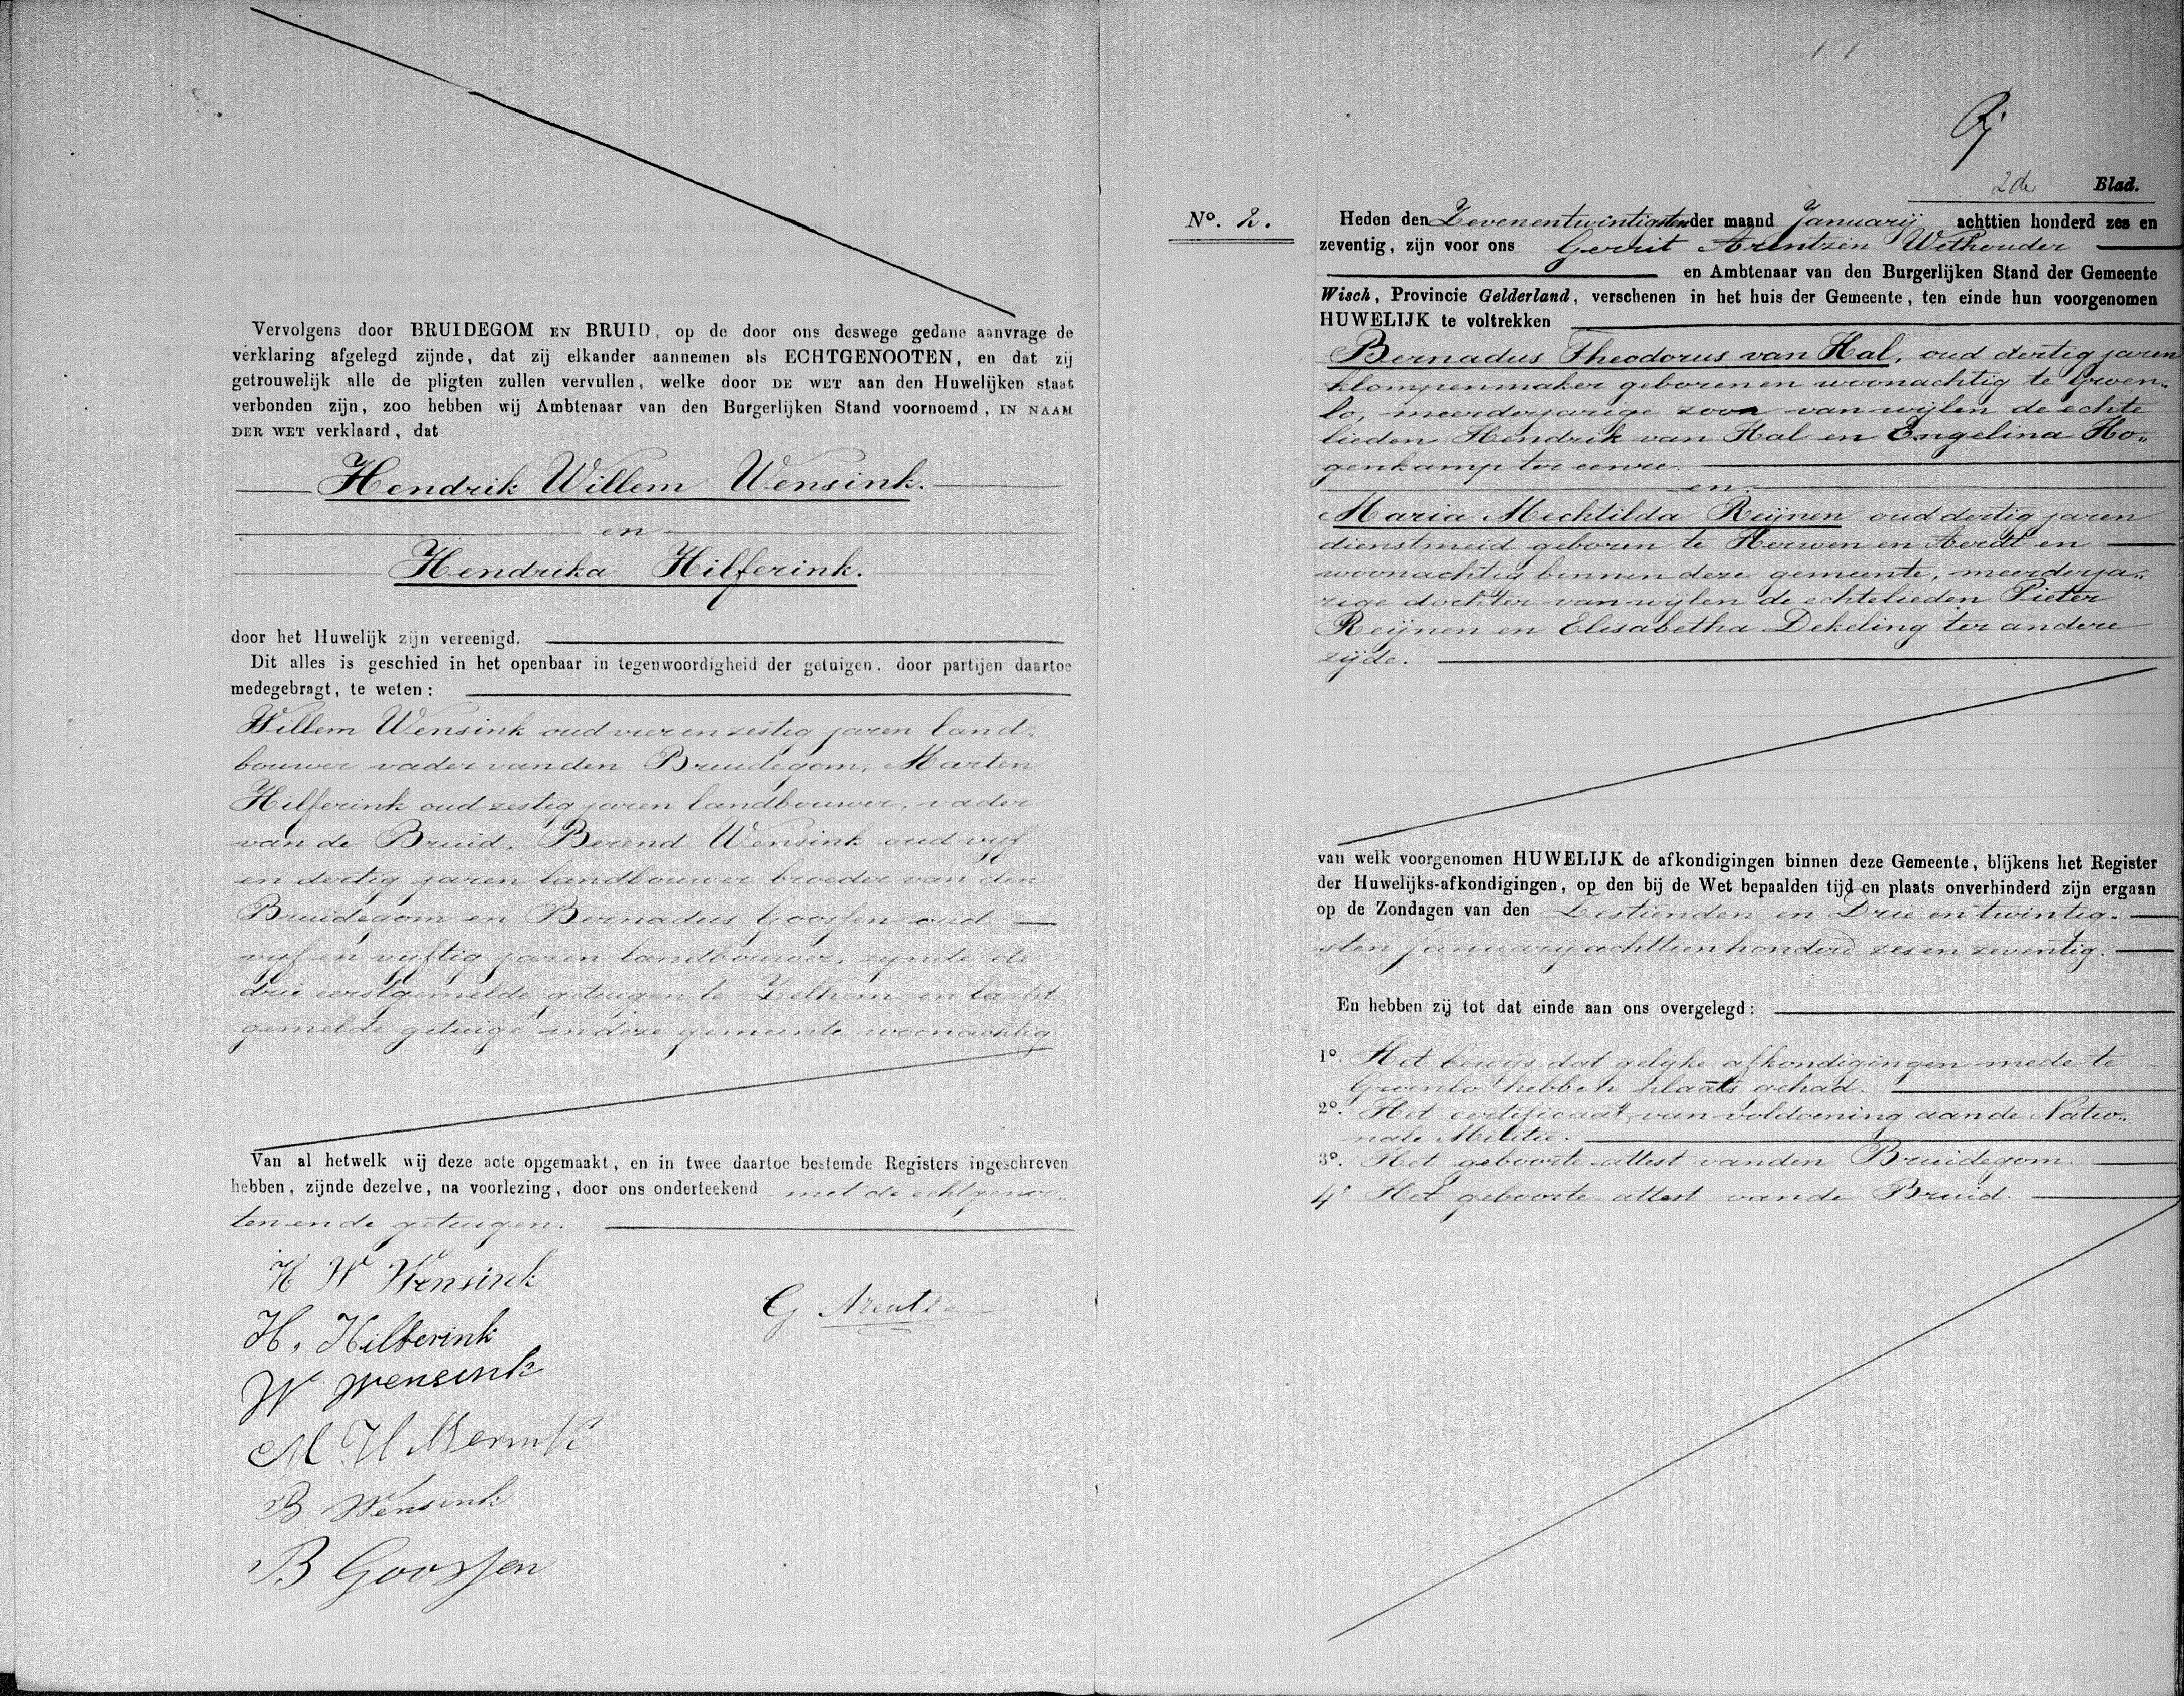 Vervolgens door BRUIDEGOM EN BRUID, op de door ons deswege gedane aanvrage de
verklaring afgelegd zijnde, dat zij elkander aannemen als ECHTGENOOTEN, en dat zij
getrouwelijk alle de pligten zullen vervullen, welke door DE WET aan den Huwelijken staat
verbonden zijn, zoo hebben wij Ambtenaar van den Burgerlijken Stand voornoemd, IN NAAM
DER WET verklaard, dat
Hendrik Willem Wensink.
en
Hendrika Hilferink.
door het Huwelijk zijn vereenigd.
Dit alles is geschied in het openbaar in tegenwoordigheid der getuigen, door partijen daartoe
medegebragt, te weten:
Willem Wensink oud vier en zestig jaren land-
bouwer vader van den Bruidegom, Marten
Hilferink oud zestig jaren landbouwer, vader
van de Bruid, Berend Wensink oud vijf
en dertig jaren landbouwer broeder van den
Bruidegom en Bernadus Goossen oud
vijf en vijftig jaren landbouwer, zijnde de
drie eerstgemelde getuigen te Zelhem en laatst
gemelde getuige in deze gemeente woonachtig
Van al hetwelk wij deze acte opgemaakt, en in twee daartoe bestemde Registers ingeschreven
hebben, zijnde dezelve, na voorlezing, door ons onderteekend met de echtgenoo„
ten en de getuigen.
H W Wensink
G Arentz
H, Hilferink
W Wensink
M H
B Wensink
B Goossen
2de Blad.
No. 2.
Heden den Zevenentwintigsten der maand Januarij achttien honderd zes en
zeventig, zijn voor ons Gerrit Arentzen Wethouder
en Ambtenaar van den Burgerlijken Stand der Gemeente
Wisch, Provincie Gelderland, verschenen in het huis der Gemeente, ten einde hun voorgenomen
HUWELIJK te voltrekken
Bernadus Theodorus van Hal, oud dertig jaren
klompenmaker geboren en woonachtig te Groen„
lo, meerderjarige zoon van wijlen de echte
lieden Hendrik van Hal en Engelina Ho„
genkamp ter eenre.
en
Maria Mechtilda Reijnen oud dertig jaren
dienstmeid geboren te Herwen en Aerdt en
woonachtig binnen deze gemeente, meerderja„
rige dochter van wijlen de echtelieden Pieter
Reijnen en Elisabetha Dekeling ter andere
zijde.
van welk voorgenomen HUWELIJK de afkondigingen binnen deze Gemeente, blijkens het Register
der Huwelijks-afkondigingen, op den bij de Wet bepaalden tijd en plaats onverhinderd zijn ergaan
op de Zondagen van den Zestienden en Drie en twintig-
sten Januarij achttien honderd zes en zeventig.
En hebben zij tot dat einde aan ons overgelegd:
1o. Het bewijs dat gelijke afkondigingen mede te
Groenlo hebben plaats gehad.
2o. Het certificaat van voldoening aan de Natio„
nale Militie.
3o. Het geboorte attest van den Bruidegom.
4o Het geboorte attest van de Bruid.